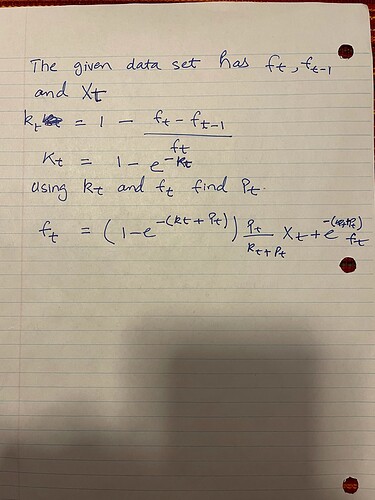 The given data set has ft, ft-1
and Xt
kt = 1 - (ft - ft-1) / ft
Kt = 1 - e^-kt
using kt and ft find Pt.
ft = (1-e^-(kt + Pt)) Pt / (kt + Pt) Xt + e^-(kt+Pt) ft